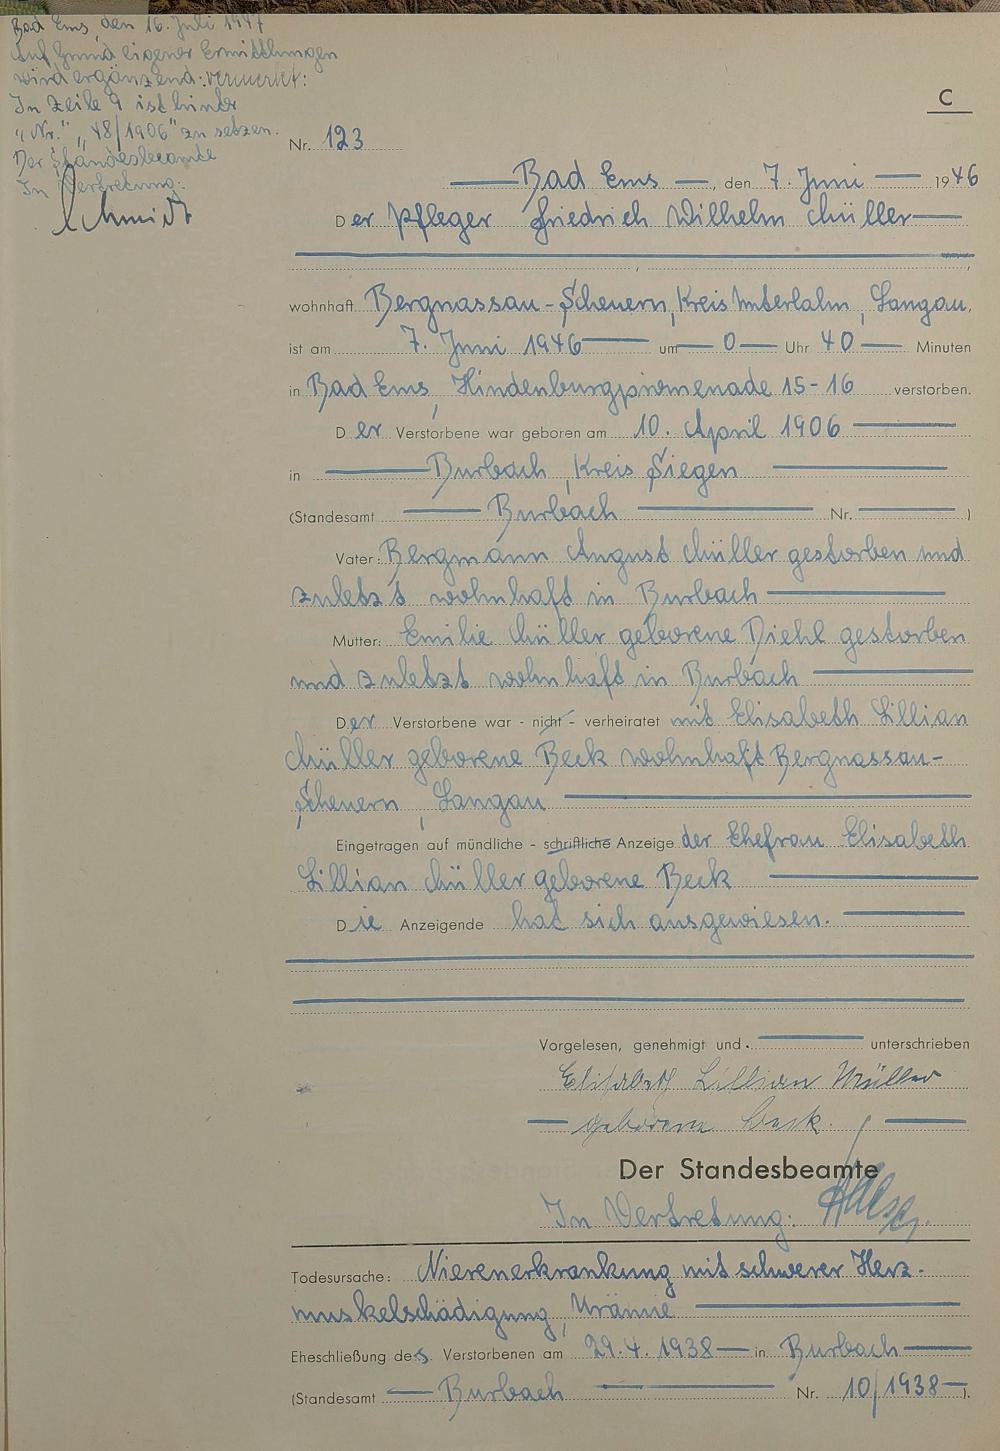 Bad Ems, den 16. Juli 1947
Auf Grund eigener Ermittlungen
wird ergänzend vermerkt:
In Zeile 9 ist hinter
"Nr." "48/1906" zu setzen.
Der Standesbeamte
In Vertretung:
Schmidt
C
Nr. 123
Bad Ems, den 7. Juni 1946
Der Pfleger Friedrich Wilhelm Müller
wohnhaft Bergnassau-Scheuern, Kreis Unterlahn, Langau,
ist am 7. Juni 1946 um 0 Uhr 40 Minuten
in Bad Ems, Hindenburgpromenade 15-16 verstorben.
Der Verstorbene war geboren am 10. April 1906
in Burbach, Kreis Siegen
(Standesamt Burbach Nr. )
Vater: Bergmann August Müller gestorben und
zuletzt wohnhaft in Burbach
Mutter: Emilie Müller geborene Diehl gestorben
und zuletzt wohnhaft in Burbach
Der Verstorbene war - nicht - verheiratet mit Elisabeth Lillian
Müller geborene Beck wohnhaft Bergnassau-
Scheuern, Langau
Eingetragen auf mündliche - schriftliche Anzeige der Ehefrau Elisabeth
Lillian Müller geborene Beck
Die Anzeigende hat sich ausgewiesen.
Vorgelesen, genehmigt und unterschrieben
Elisabeth Lillian Müller
geborene Beck.
Der Standesbeamte
In Vertretung:
Todesursache: Nierenerkrankung mit schwerer Herz-
muskelschädigung, Urämie
Eheschließung des Verstorbenen am 29.4.1938 in Burbach
(Standesamt Burbach Nr. 10/1938).